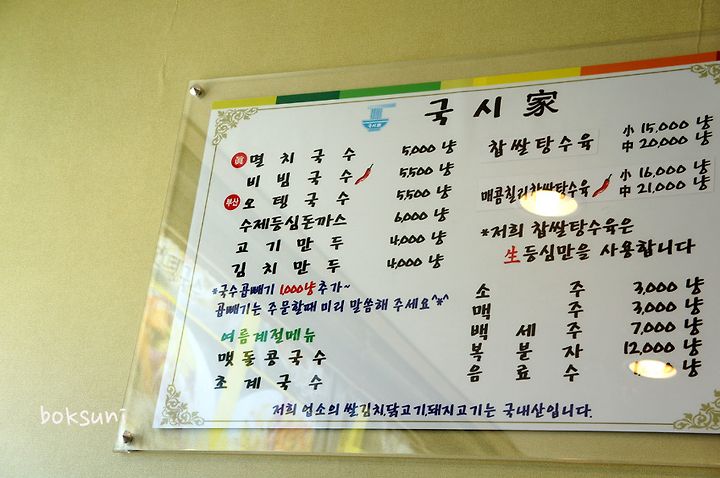 국시家
眞 멸치국수 5,000 냥
비빔국수 5500 냥
부산 오뎅국수 5500 냥
수제등심돈까스 6,000 냥
고기만두 4,000 냥
김치만두 4,000 냥
*국수곱빼기 1,000냥추가~
곱빼기는 주문할때 미리 말씀해 주세요^*^
여름계절메뉴
맷돌콩국수
초계국수
찹쌀탕수육 小 15,000 냥
中 20,000 냥
매콤칠리찹쌀탕수육 小 16,000 냥
中 21,000 냥
*저희 찹쌀탕수육은
生등심만을 사용합니다
소주 3,000 냥
맥주 3,000 냥
백세주 7,000 냥
복분자 12,000 냥
음료수 냥
저희 업소의 쌀김치닭고기돼지고기는 국내산입니다.
boksuni